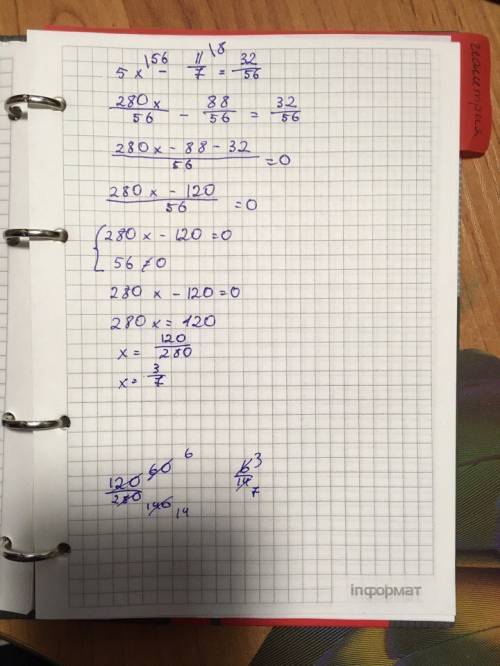 5x\56 - 11/7\8 = 32/56
280x/56 - 88/56 = 32/56
280x - 88 - 32/56 = 0
280x - 120/56 = 0
{280x - 120 = 0
56 ≠ 0
280x - 120 = 0
280x = 120
x = 120/280
x = 3/7
120/280 60/140 6/14
6/14 3/7
геометрия
inформат